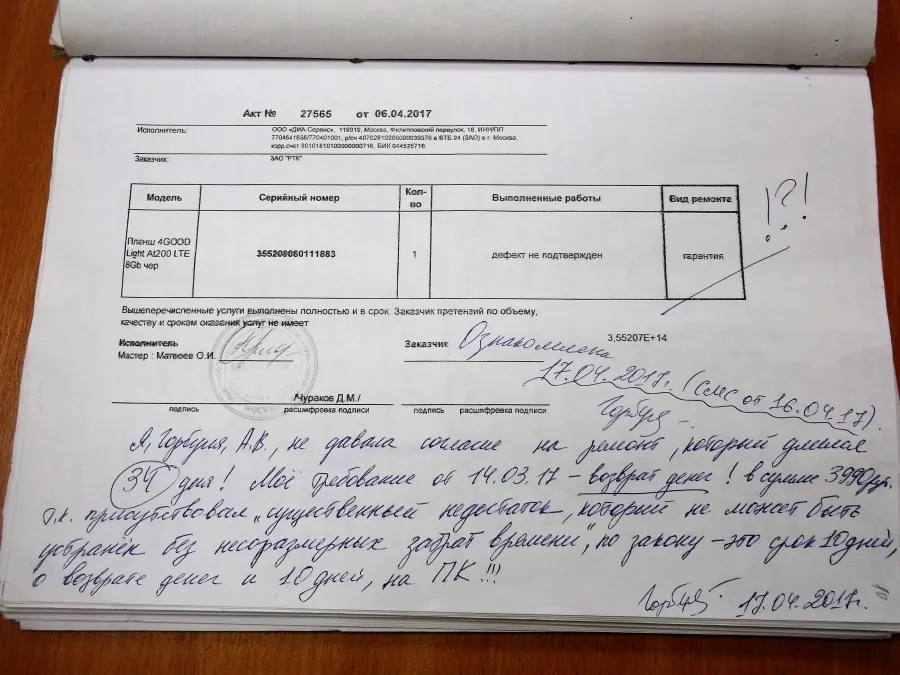 Акт № 27565 от 06.04.2017
Исполнитель: ООО «ДИА-Сервис», 119019, Москва, Филипповский переулок, 18, ИНН/ПП
7704641838/770401001, р/сч 40702810200000039378 в ВТБ 24 (ЗАО) в г. Москва,
корр.счет 30101810100000000716, БИК 044525716
Заказчик: ЗАО "РТК"
Модель Серийный номер Кол-во Выполненные работы Вид ремонта
!?!
Планш 4GOOD
Light At200 LTE
8Gb чер
355208080111883 1 дефект не подтвержден гарантия
Вышеперечисленные услуги выполнены полностью и в срок. Заказчик претензий по объему,
качеству и срокам оказания услуг не имеет
Исполнитель Заказчик Ознакомлена 3,55207E+14
Мастер : Матвеев О.И.
17.04.2017г. (СМС от 16.04.17).
/Чураков Д.М./
подпись расшифровка подписи подпись расшифровка подписи
Я, А.В., не давала согласие на ремонт, который длился
34 дня! Моё требование от 14.03.17 – возврат денег! в сумме 3990руб.
т.к. присутствовал "существенный недостаток, который не может быть
устранён без несоразмерных затрат времени", по закону – это срок 10 дней,
о возврате денег и 10 дней, на ПК!!!
17.04.2017г.